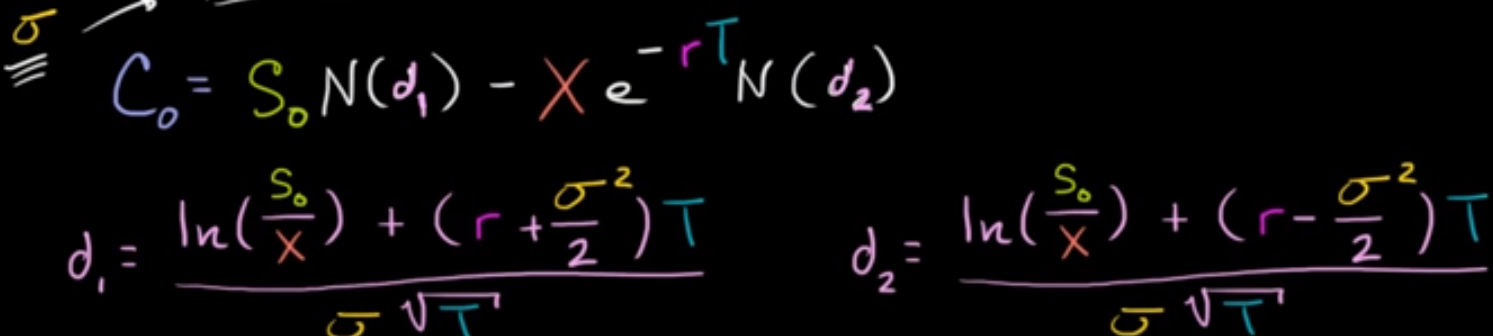 σ
C₀ = S₀ N(d₁) - X e^{-rT} N(d₂)
d₁ = (ln(S₀/X) + (r + σ²/2) T) / (σ√T)
d₂ = (ln(S₀/X) + (r - σ²/2) T) / (σ√T)